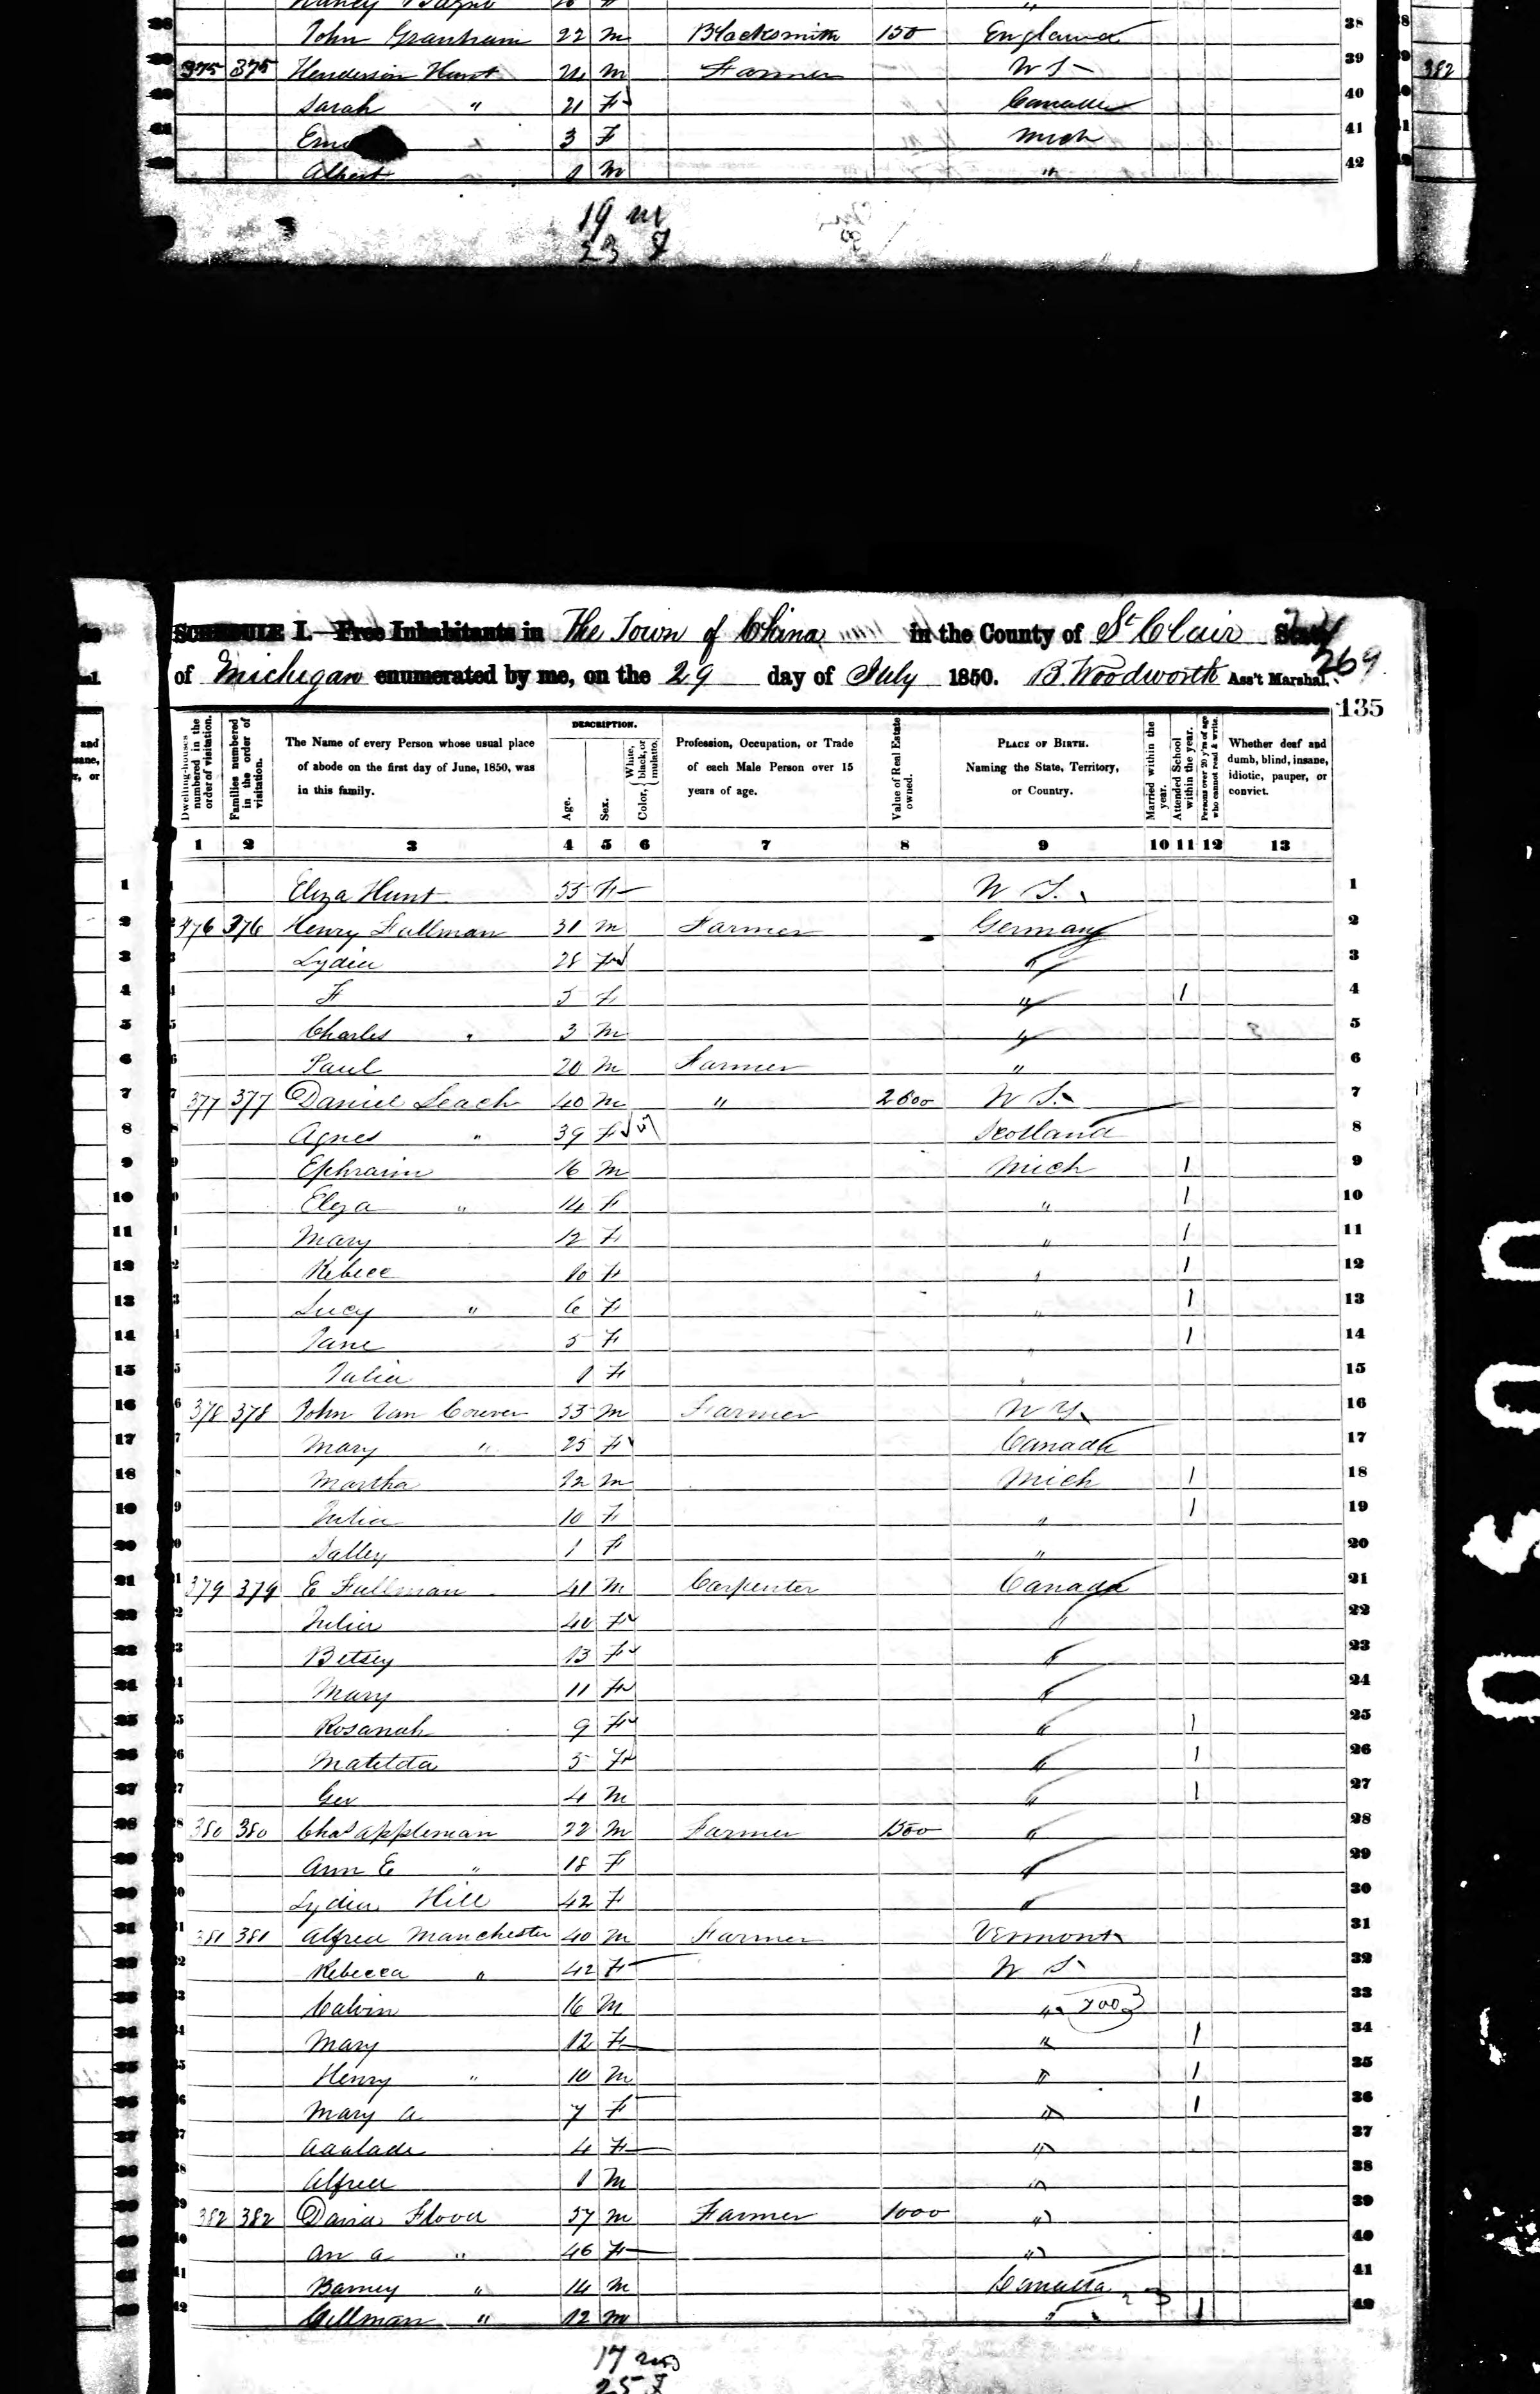 38 John Granham 22 M Blacksmith 150 England 38
39 375 375 Henderson Hunt 24 M Farmer N Y 39 382
40 Sarah " 21 F Canada 40
41 3 F Mich 41
42 Albert 1 M " 42
19 M
23 F
SCHEDULE I.—Free Inhabitants in The Town of China in the County of St Clair State
of Michigan enumerated by me, on the 29 day of July 1850. B. Woodworth Ass't Marshal.
269
135
Dwelling-houses numbered in the order of visitation.
Families numbered in the order of visitation.
The Name of every Person whose usual place of abode on the first day of June, 1850, was in this family.
DESCRIPTION.
Age.
Sex.
Color, White, black, or mulatto.
Profession, Occupation, or Trade of each Male Person over 15 years of age.
Value of Real Estate owned.
PLACE OF BIRTH. Naming the State, Territory, or Country.
Married within the year.
Attended School within the year.
Persons over 20 y'rs of age who cannot read & write.
Whether deaf and dumb, blind, insane, idiotic, pauper, or convict.
1 2 3 4 5 6 7 8 9 10 11 12 13
1 Eliza Hunt 55 F N Y. 1
2 376 376 Henry Fullman 31 M Farmer Germany 2
3 Lydia 28 F " 3
4 F 5 F " 1 4
5 Charles " 3 M " 5
6 Paul 20 M Farmer " 6
7 377 377 Daniel Leach 40 M " 2600 N Y. 7
8 Agnes " 39 F Scotland 8
9 Ephraim 16 M Mich 1 9
10 Eliza " 14 F " 1 10
11 Mary 12 F " 1 11
12 Rebecc 10 F " 1 12
13 Lucy " 6 F " 1 13
14 Jane 5 F " 1 14
15 Julia 1 F " 15
16 378 378 John Van Couver 55 M Farmer N Y 16
17 Mary " 25 F Canada 17
18 Martha 12 M Mich 1 18
19 Julia 10 F " 1 19
20 Salley 1 F " 20
21 379 379 E Fullman 41 M Carpenter Canada 21
22 Julia 40 F " 22
23 Betsey 13 F " 23
24 Mary 11 F " 24
25 Rosanah 9 F " 1 25
26 Matilda 5 F " 1 26
27 Geo 4 M " 1 27
28 380 380 Chas Appleman 22 M Farmer 1500 " 28
29 Ann E " 18 F " 29
30 Lydia Hill 42 F " 30
31 381 381 Alfred Manchester 40 M Farmer Vermont 31
32 Rebecca " 42 F N Y 32
33 Calvin 16 M " 33
34 Mary 12 F " 1 34
35 Henry " 10 M " 1 35
36 Mary A 7 F " 1 36
37 Aaalade 4 F " 37
38 Alfred 1 M " 38
39 382 382 David Flood 57 M Farmer 1000 " 39
40 An A " 46 F " 40
41 Barney " 14 M Canada 41
42 Gillman " 12 M " 1 42
17 M
25 F